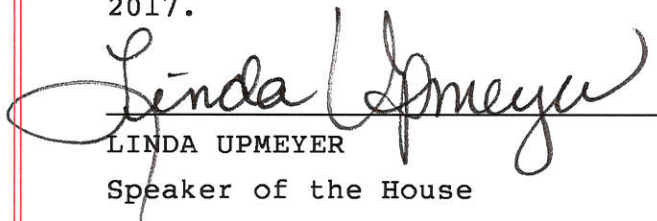 2017.
Linda Upmeyer
LINDA UPMEYER
Speaker of the House